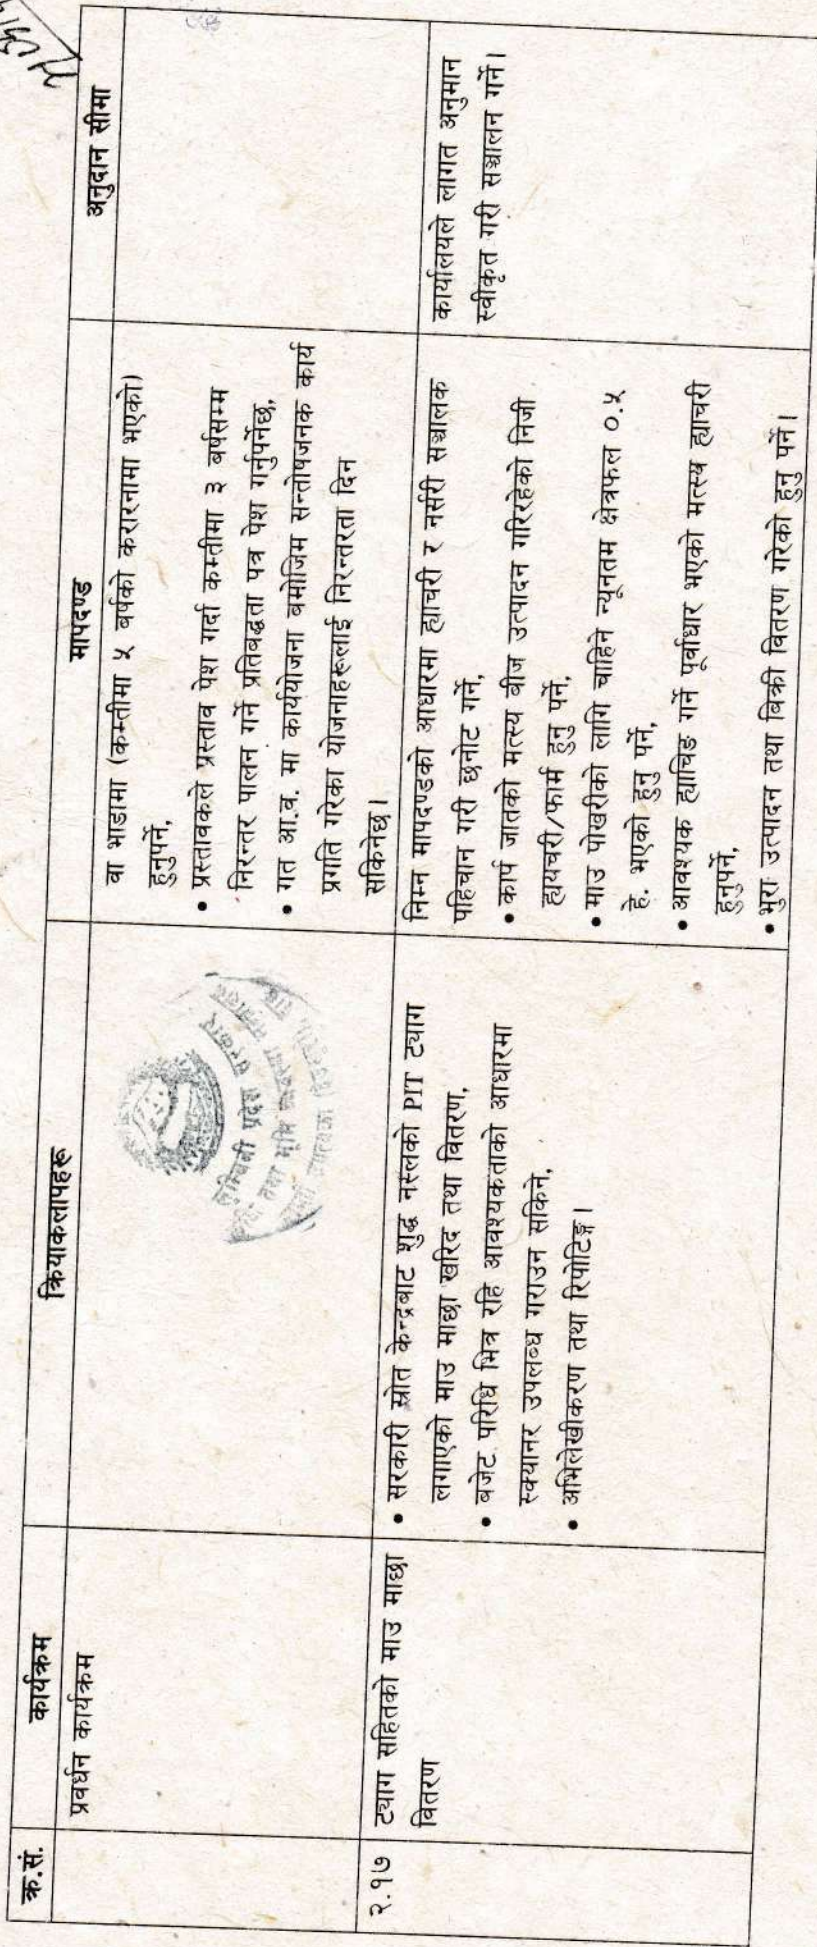 क्र.सं.
कार्यक्रम
क्रियाकलापहरू
मापदण्ड
अनुदान सीमा
प्रवर्धन कार्यक्रम
लुम्बिनी प्रदेश सरकार
वा भाडामा (कम्तीमा ५ बर्षको करारनामा भएको)
हुनुपर्ने,
• प्रस्तावकले प्रस्ताव पेश गर्दा कम्तीमा ३ बर्षसम्म
निरन्तर पालन गर्ने प्रतिबद्धता पत्र पेश गर्नुपर्नेछ,
• गत आ.व. मा कार्ययोजना बमोजिम सन्तोषजनक कार्य
प्रगति गरेका योजनाहरूलाई निरन्तरता दिन
सकिनेछ।
२.१७
ट्याग सहितको माउ माछा
वितरण
• सरकारी स्रोत केन्द्रबाट शुद्ध नस्लको PIT ट्याग
लगाएको माउ माछा खरिद तथा वितरण,
• बजेट परिधि भित्र रहि आवश्यकताको आधारमा
स्क्यानर उपलब्ध गराउन सकिने,
• अभिलेखीकरण तथा रिपोटिङ्ग।
निम्न मापदण्डको आधारमा ह्याचरी र नर्सरी सञ्चालक
पहिचान गरी छनोट गर्ने,
• कार्प जातको मत्स्य बीज उत्पादन गरिरहेको निजी
ह्यचरी/फार्म हुनु पर्ने,
• माउ पोखरीको लागि चाहिने न्यूनतम क्षेत्रफल ०.५
हे. भएको हुनु पर्ने,
• आवश्यक ह्याचिङ गर्ने पूर्वाधार भएको मत्स्य ह्याचरी
हुनुपर्ने,
• भुरा उत्पादन तथा बिक्री वितरण गरेको हुनु पर्ने।
कार्यालयले लागत अनुमान
स्वीकृत गरी सञ्चालन गर्ने।